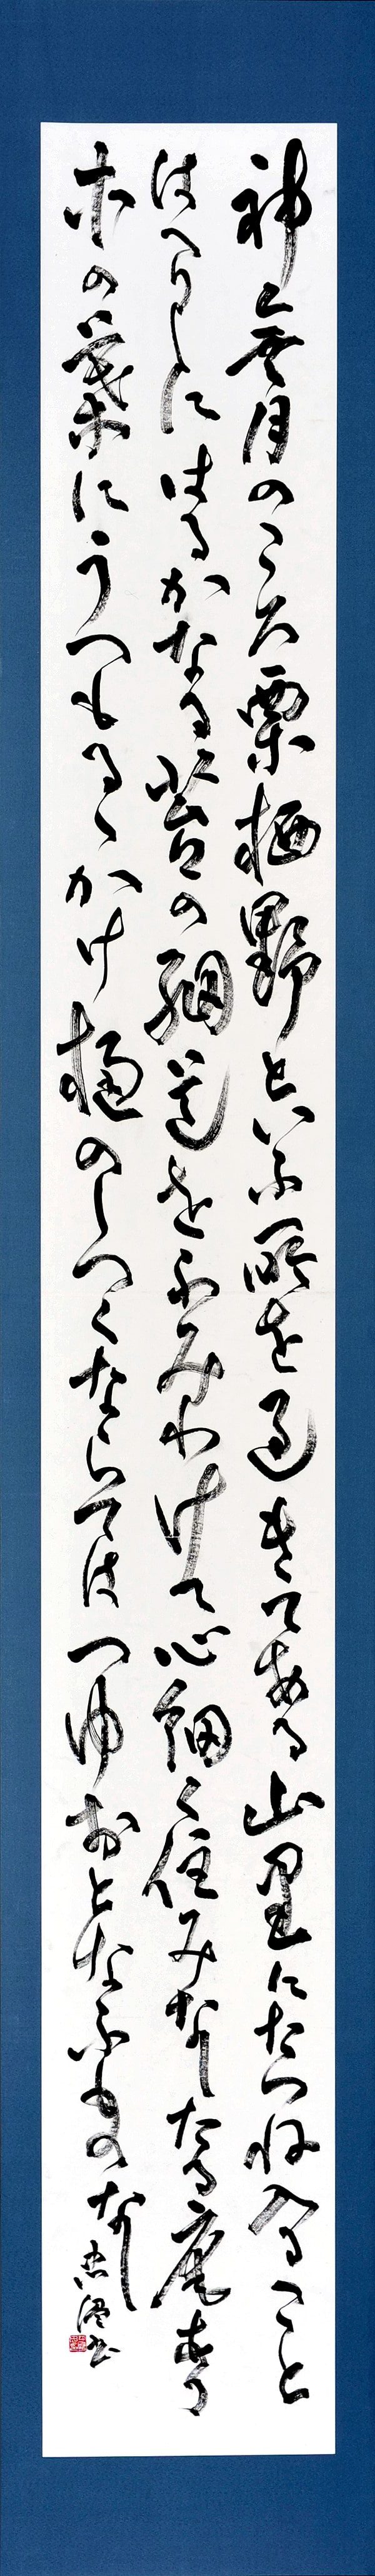 神無月のころ栗栖野といふ所を過きてある山里にたつね入ること
はへりしにはるかなる苔の細道をふみわけて心細く住みなしたる庵あり
木の葉にうつもるゝかけ樋のしつくならてはつゆおとなふものなし
書